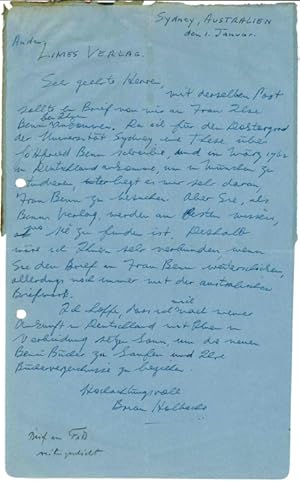 Sydney, AUSTRALIEN
den 1. Januar.
An den
LIMES VERLAG.
Sehr geehrte Herren,
mit derselben Post
sollte ein Brief von mir an Frau Ilse
Benn ankommen. Da ich für den Doktorgrad
der Universität Sydney eine These über
Gottfried Benn schreibe, und im März 1962
in Deutschland ankomme, um in München zu
studieren, liegt es mir sehr daran,
Frau Benn zu besuchen. Aber Sie, als
Benns Verlag, werden am besten wissen,
wo sie zu finden ist. Deshalb
wäre ich Ihnen sehr verbunden, wenn
Sie den Brief an Frau Benn weiterschicken,
allerdings noch immer mit der australischen
Briefmarke.
Ich hoffe, dass ich mich nach meiner
Ankunft in Deutschland mit Ihnen in
Verbindung setzen kann, um die neuen
Benn Bücher zu kaufen und Ihre
Bücherverzeichnisse zu
Hochachtungsvoll
Brian
Brief an